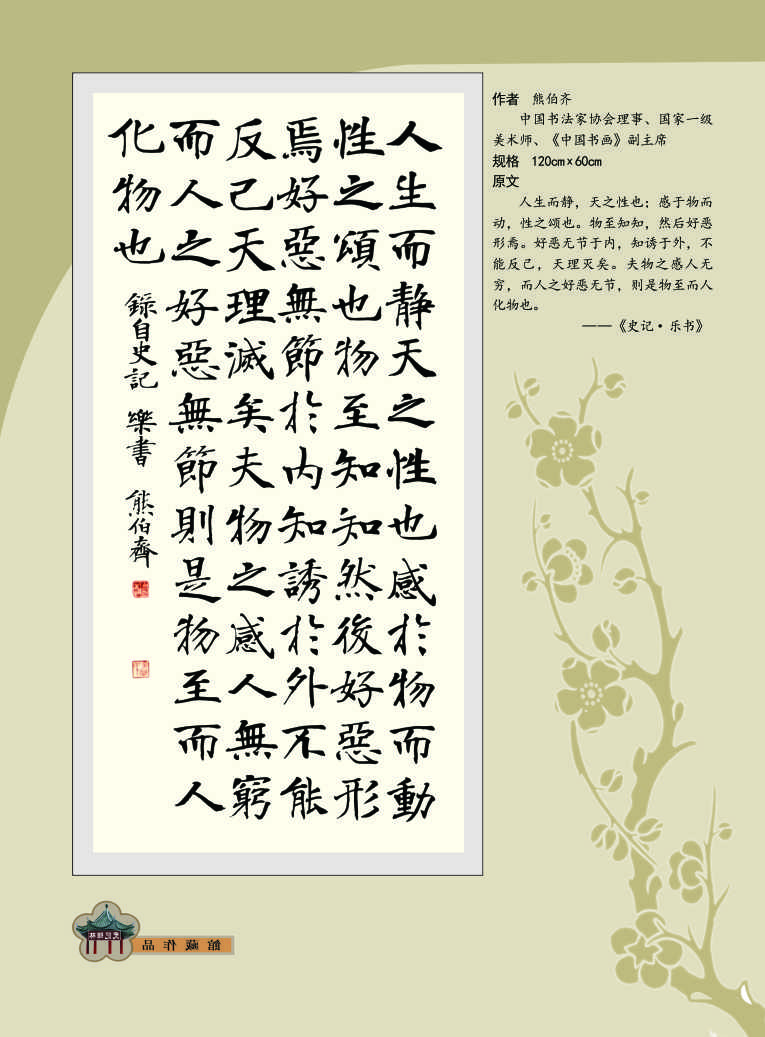 人生而静天之性也感於物而動
性之頌也物至知知然後好惡形
焉好惡無節於内知誘於外不能
反己天理滅矣夫物之感人無窮
而人之好惡無節則是物至而人
化物也
錄自史記 樂書 熊伯齊
作者 熊伯齐
中国书法家协会理事、国家一级
美术师、《中国书画》副主席
规格 120cm×60cm
原文
人生而静，天之性也；感于物而
动，性之颂也。物至知知，然后好恶
形焉。好恶无节于内，知诱于外，不
能反己，天理灭矣。夫物之感人无
穷，而人之好恶无节，则是物至而人
化物也。
——《史记·乐书》
館藏作品